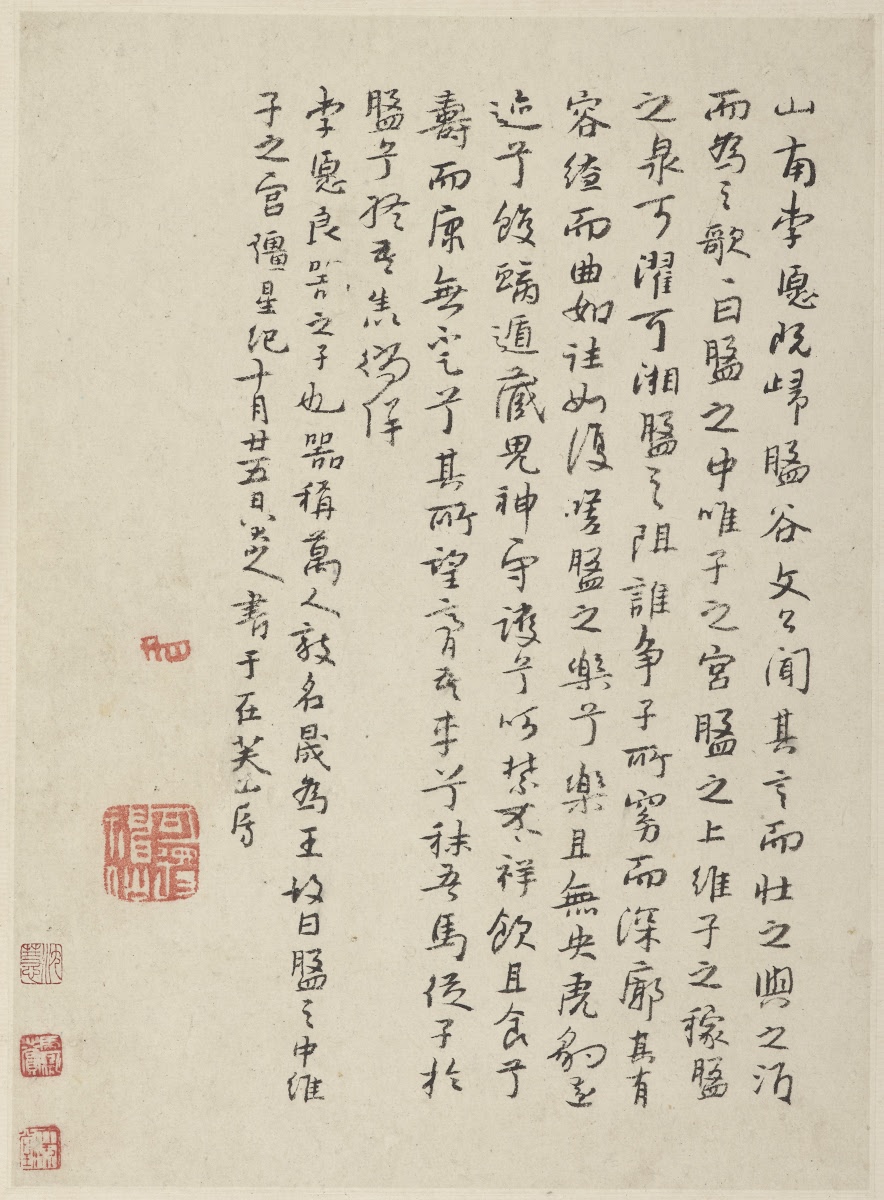 山南李愿既歸盤谷文公聞其言而壯之與之酒
而為之歌曰盤之中唯子之宮盤之上維子之稼盤
之泉可濯可湘盤之阻誰爭子所窈而深廓其有
容繚而曲如往如復嗟盤之樂兮樂且無央虎豹遠
迹兮蛟螭遁藏鬼神守護兮呵禁不祥飲且食兮
壽而康無不足兮其所望膏吾車兮秣吾馬從子於
盤兮終吾生徜徉
李愿良器之子也器稱萬人敵名晟為王故曰盤之中維
子之宮彊星紀十月廿五日八大山人書于在芙山房